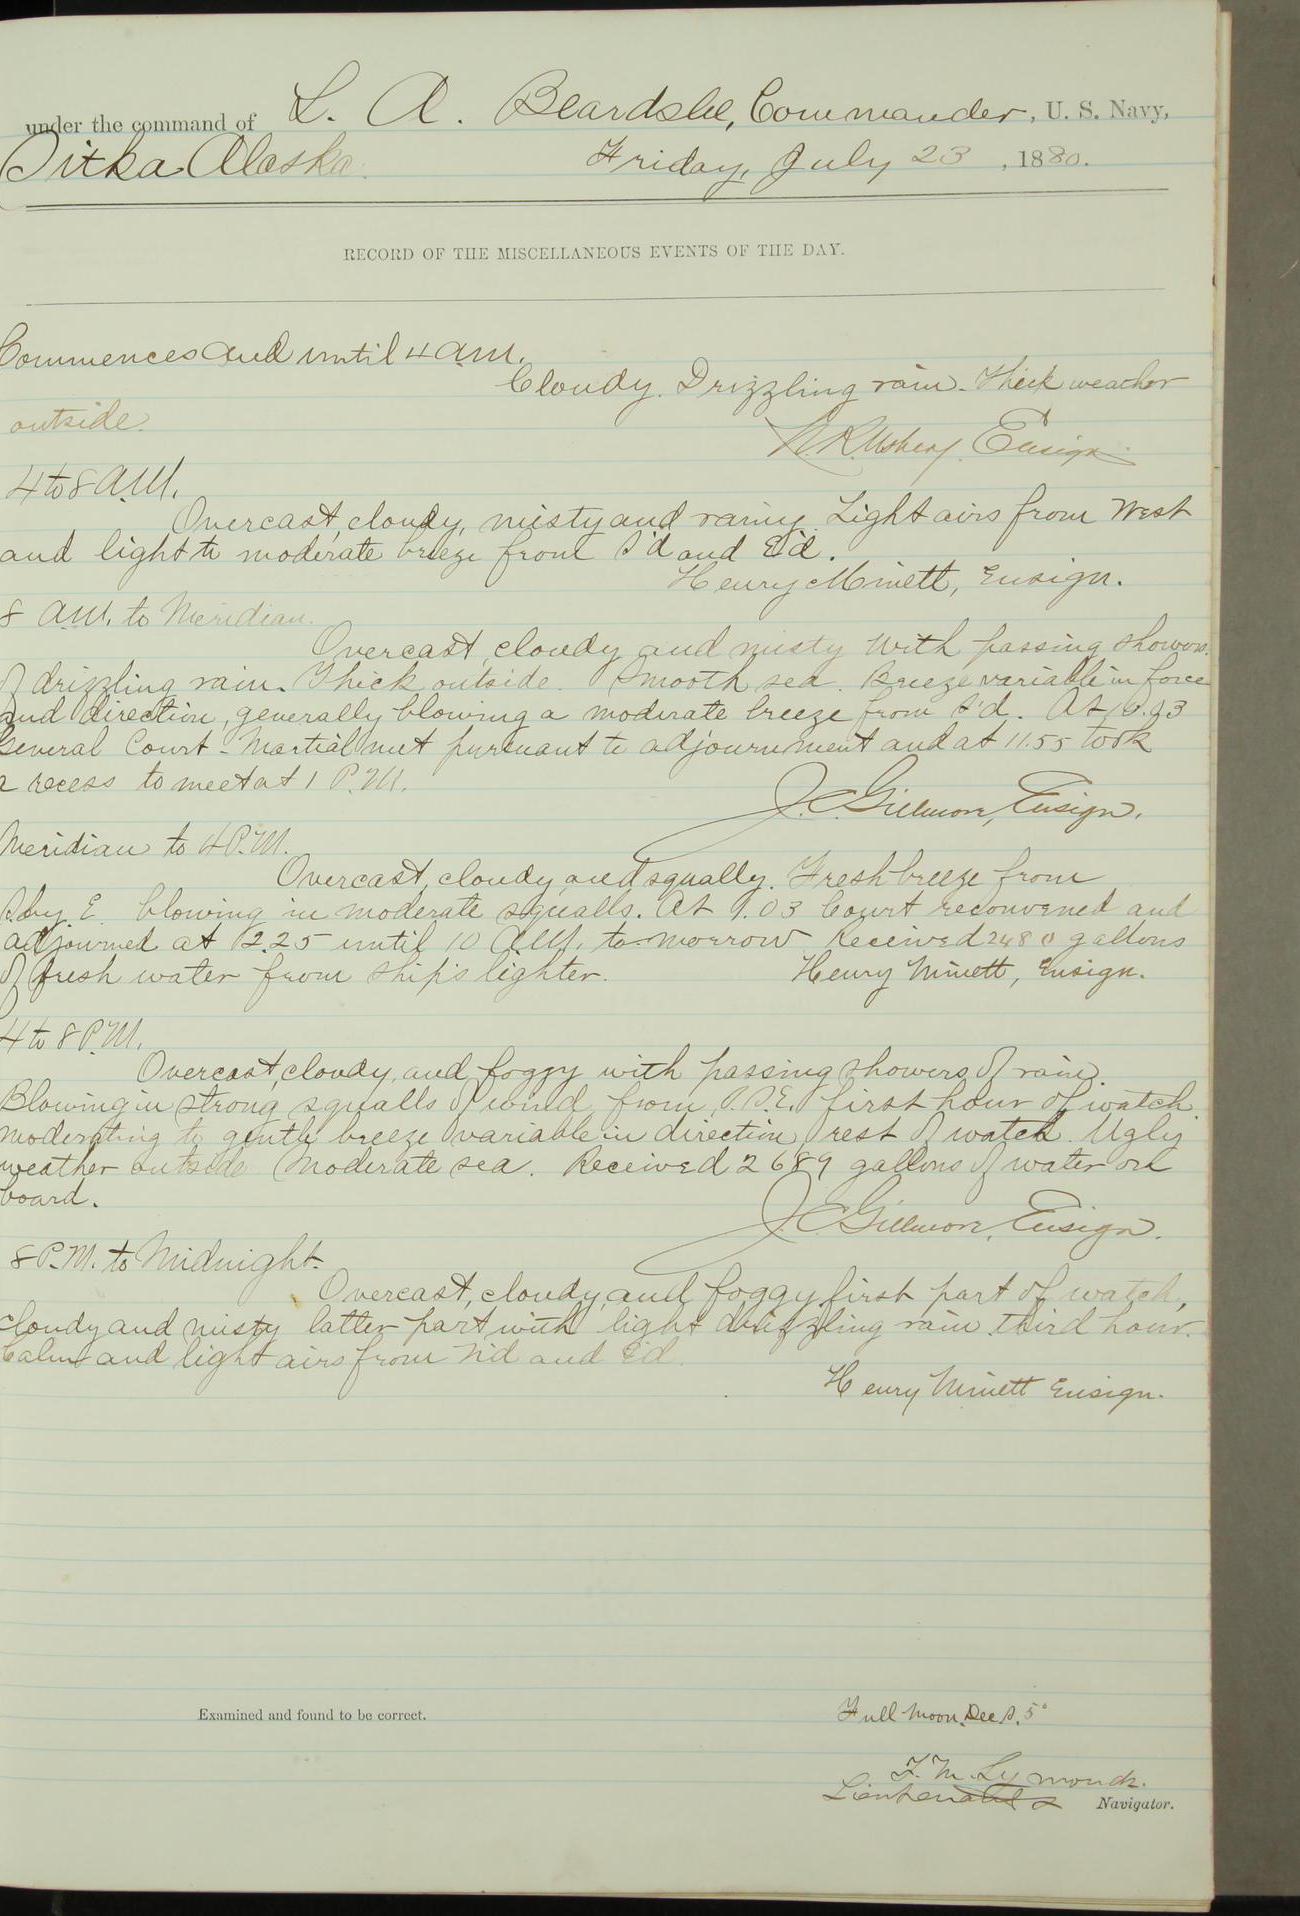 under the command of L. A. Beardslee, Commander, U. S. Navy,
Sitka Alaska. Friday, July 23, 1880.
RECORD OF THE MISCELLANEOUS EVENTS OF THE DAY.
Commences and until 4 a.m.
Cloudy. Drizzling rain. Thick weather
outside.
N. R. Usher, Ensign.
4 to 8 A.M.
Overcast, cloudy, misty and rainy. Light airs from West
and light to moderate breeze from S'd and E'd.
Henry Minett, Ensign.
8 A.M. to Meridian.
Overcast, cloudy and misty with passing showers
of drizzling rain. Thick outside. Smooth sea. Breeze variable in force
and direction, generally blowing a moderate breeze from S'd. At
General Court-Martial met pursuant to adjournment and at 11.55 took
a recess to meet at 1 P.M.
J. C. Gillmore, Ensign.
Meridian to 4 P.M.
Overcast, cloudy and squally. Fresh breeze from
S. by E. blowing in moderate squalls. At 1.03 Court reconvened and
adjourned at 2.25 until 10 A.M. to-morrow. Received 2480 gallons
of fresh water from ship's lighter. Henry Minett, Ensign.
4 to 8 P.M.
Overcast, cloudy, and foggy with passing showers of rain.
Blowing in strong squalls of wind from S.S.E. first hour of watch.
moderating to gentle breeze variable in direction rest of watch. Ugly
weather outside. Moderate sea. Received 2689 gallons of water on
board.
J. C. Gillmore, Ensign.
8 P.M. to Midnight.
Overcast, cloudy, and foggy first part of watch,
cloudy and misty latter part with light drizzling rain third hour.
Calm and light airs from N'd and E'd.
Henry Minett Ensign.
Examined and found to be correct. Full Moon. Dec S. 5°
F. M. Symonds.
Lieutenant & Navigator.